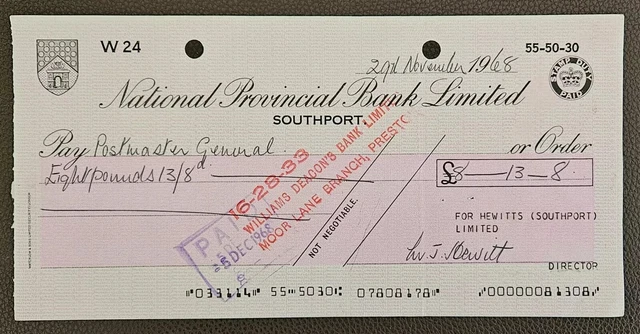 W 24
55-50-30
29th November 1968
STAMP DUTY PAID
National Provincial Bank Limited
SOUTHPORT.
Pay Postmaster General. or Order
Eight pounds 13/8d £8—13—8
16-28-33
WILLIAMS DEACON'S BANK, LIMITE
MOOR LANE BRANCH, PRESTO
NOT NEGOTIABLE.
PAI
5 DEC 1968
FOR HEWITTS (SOUTHPORT)
LIMITED
Hewitt
DIRECTOR
"033114" 55-5030: 07808178" "0000081308"